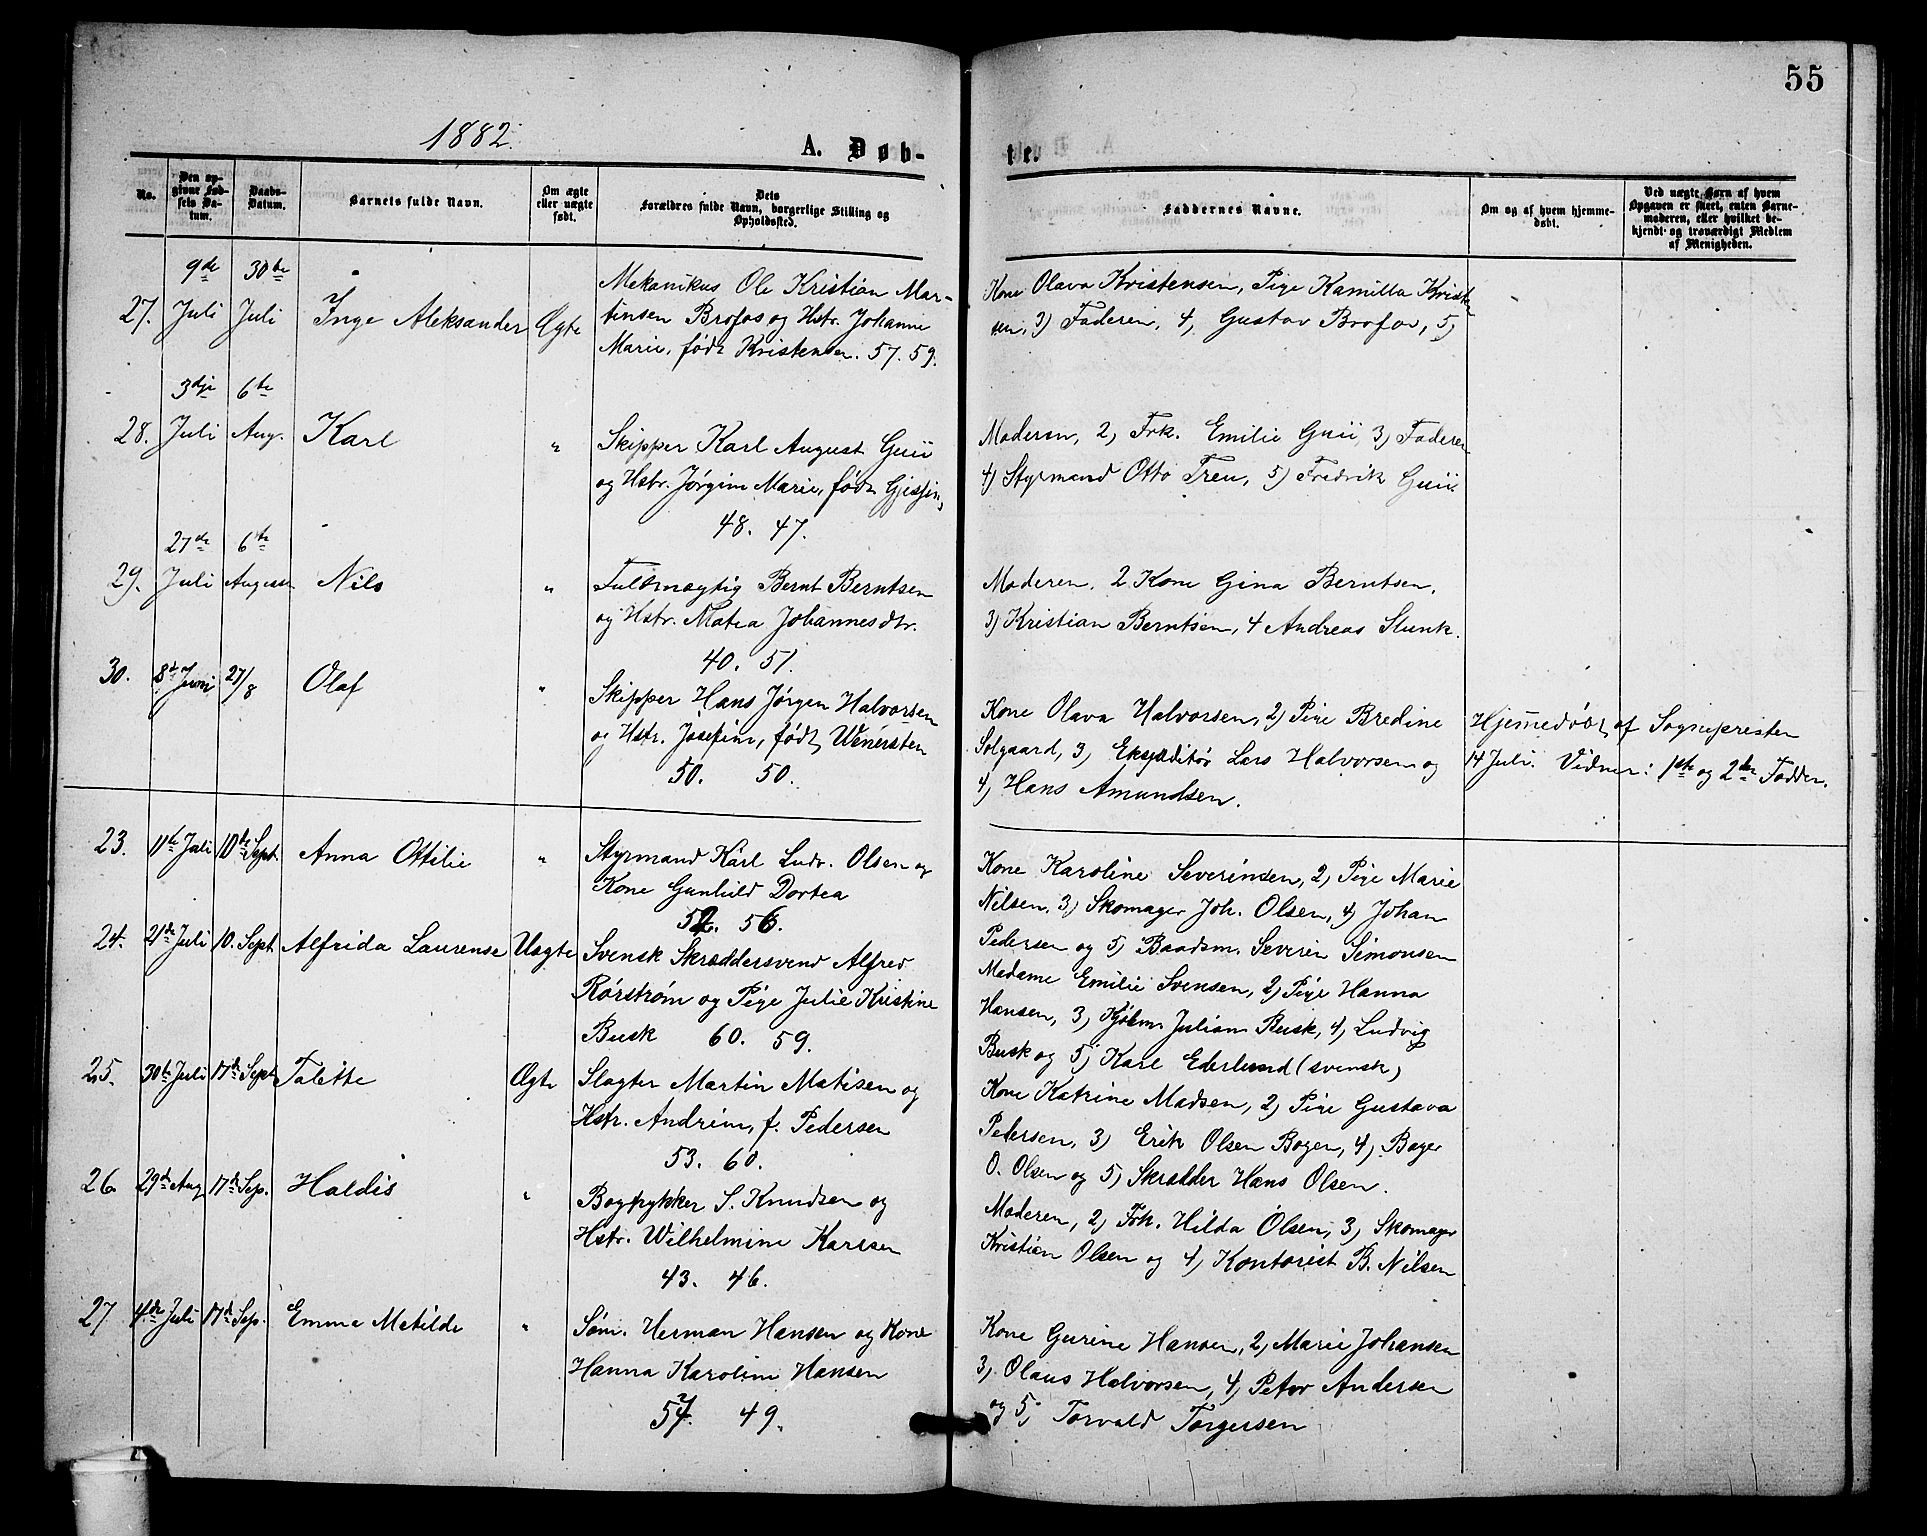 55
1882.
A. Døb-
te.
No.
Den op-
givne Fød-
sels Da-
tum.
Daabs-
Datum.
Barnets fulde Navn.
Om ægte
eller uægte
født.
Dets
Forældres fulde Navn, borgerlige Stilling og
Opholdssted.
Faddernes Navne.
Om og af hvem hjemme-
døbt.
Ved uægte Børn af hvem
Opgaven er skeet, enten Barne-
moderen, eller hvilket be-
kjendt og troværdigt Medlem
af Menigheden.
9de 30te
27. Juli Juli Inge Aleksander Ægte
Mekanikus Ole Kristian Mar-
tinsen Brofos og Hstr. Johanne
Marie, født Kristensen. 57. 59.
Kone Olava Kristensen, Pige Kamilla Krist
sen, 3) Faderen, 4, Gustav Brofos, 5,
3dje 6te
28. Juli Aug. Karl "
Skipper Karl August Guii
og Hstr. Jørgine Marie, født
48. 47.
Moderen, 2, Frk. Emilie Guii 3) Faderen
4) Styrmand Otto Treu, 5) Fredrik Guii.
27de 6te
29. Juli August Nils "
Fuldmægtig Bernt Berntsen
og Hstr. Matea Johannesdtr.
40. 51.
Moderen, 2 Kone Gina Berntsen,
3) Kristian Berntsen, 4 Andreas Slunk.
30. 8de Juni 27/8 Olaf "
Skipper Hans Jørgen Halvorsen
og Hstr. Josefine, født Wenersten
50. 50.
Kone Olava Halvorsen, 2) Pige Bredine
Solgaard, 3, Ekspeditør Lars Halvorsen og
4, Hans Amundsen.
Hjemmedøbt af Sognepresten
14 Juli. Vidner: 1ste og 2den Fadder.
23. 11te Juli 10de Sept. Anna Ottilie "
Styrmand Karl Ludv. Olsen og
Kone Gunhild Dortea
52. 56.
Kone Karoline Severinsen, 2, Pige Marie
Nilsen, 3) Skomager Joh. Olsen, 4, Johan
Pedersen og 5) Baadsm. Severin Simonsen
24. 21de Juli 10. Sept. Alfrida Laurense Uægte
Svensk Skræddersvend Alfred
Rørstrøm og Pige Julie Kristine
Busk 60. 59.
Madame Emilie Svensen, 2) Pige Hanna
Hansen, 3, Kjøbm. Julian Busk, 4, Ludvig
Busk og 5, Karl Ederlund (svensk)
25. 30te Juli 17de Sept. Talette Ægte
Slagter Martin Matisen og
Hstr. Andrine, f. Pedersen
53. 60.
Kone Katrine Madsen, 2) Pige Gustava
Pedersen, 3) Erik Olsen Bogen, 4, Bager
O. Olsen og 5, Skrædder Hans Olsen.
26. 29de Aug 17de Sep. Haldis "
Bogtrykker S. Knudsen og
Hstr. Wilhelmine Karlsen
43. 46.
Moderen, 2, Frk. Hilda Olsen, 3) Skomager
Kristian Olsen og 4, Kontorist B. Nilsen
27 4de Juli 17de Sep. Emma Matilde "
Søm. Herman Hansen og Kone
Hanna Karoline Hansen
57. 49.
Kone Gurine Hansen, 2, Marie Johansen
3, Olaus Halvorsen, 4, Peter Andersen
og 5, Torvald Torgersen